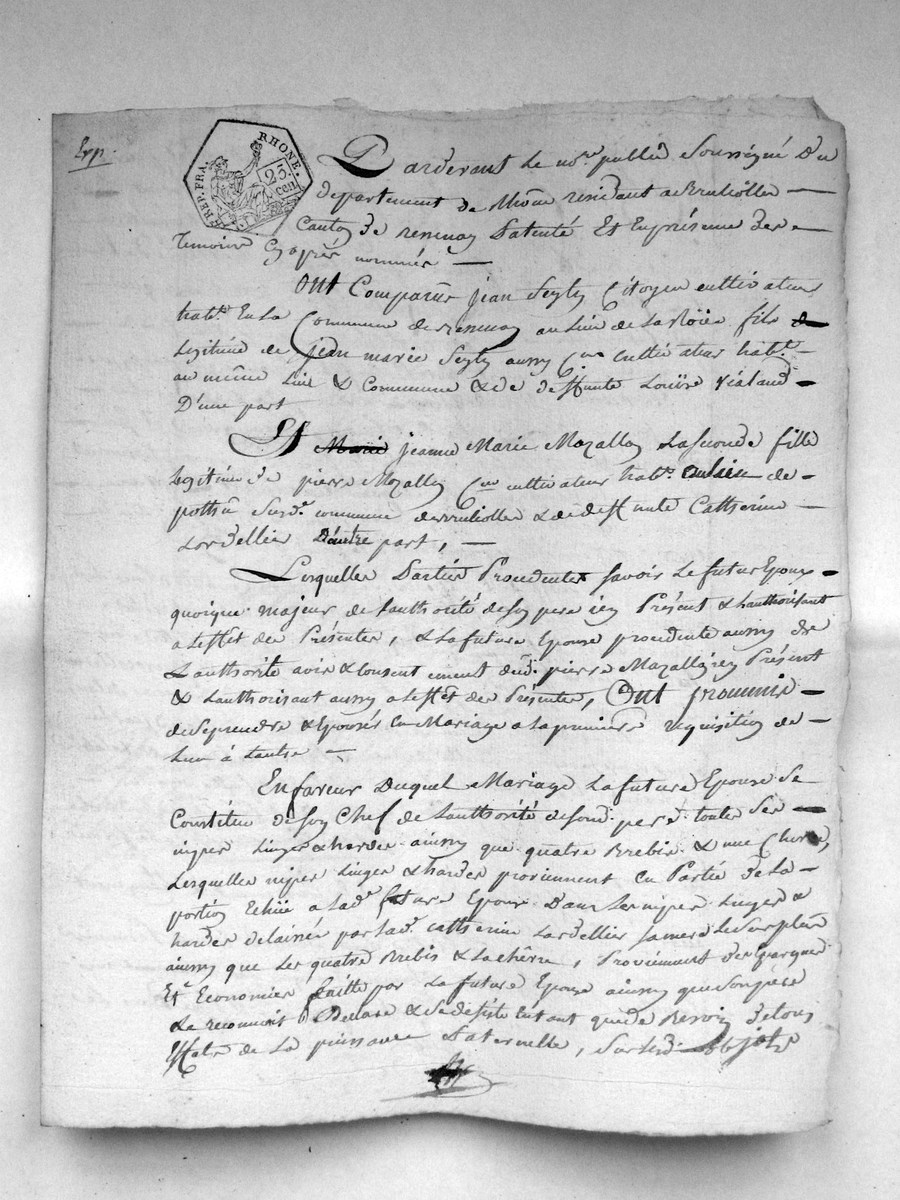 Exp.
RHONE.
REP. FRA.
25.
cen
Pardevant Le no.re public Soussigné Du
Departement de Rhône residant a Brulioller
Canton De Patenté Et En présence des
Temoins Cy après nommés
Ont Comparus jean Citoyen cultivateur
hab.t En La Commune de au Lieu de La fils
Legitime de jean marie aussy C.en cultivateur hab.t
au même Lieu & Commune & de deffunte Loüise Vialand
D'une part
Et jeanne Marie Mazallon La Seconde fille
Legitime De pierre Mazallon C.en cultivateur hab.t au Lieu de
Susd.e commune de Brulioller & de deffunte Catherine
Lardellier D'autre part,
Lesquelles Parties Procedentes Savoir Le futur Epoux
quoique majeur de Lauthorité de Son pere icy Présent & Lauthorisant
a Leffet des Présentes, & La future Epouse procedente aussy de
Lauthorité avis & Consentement dud. pierre Mazallon icy Présent
& Lauthorisant aussy a Leffet des Présentes, Ont promis
de Se prendre & Epouser En Mariage a La premiere requisition de
Lun à Lautre
En faveur Duquel Mariage La future Epouse Se
Constitue de Son Chef de Lauthorité de Sond. pere toutes Ses
nipes Linges & hardes ainsy que quatre Brebis & une Chevre,
Lesquelles nipes Linges & hardes proviennent En Partie de La
portion Echüe a Lad.e future Epouse Dans Les nipes Linges &
hardes delaissés par Lad.e Catherine Lardellier Sa mere Le Surplus
ainsy que Les quatre Brebis & La chevre, Proviennent des Epargnes
Et Economies faitte par La future Epouse ainsy que Son pere
Le reconnoit & Declare & Se desiste En tant que de Besoin De tous
de La puissance Paternelle, Sur